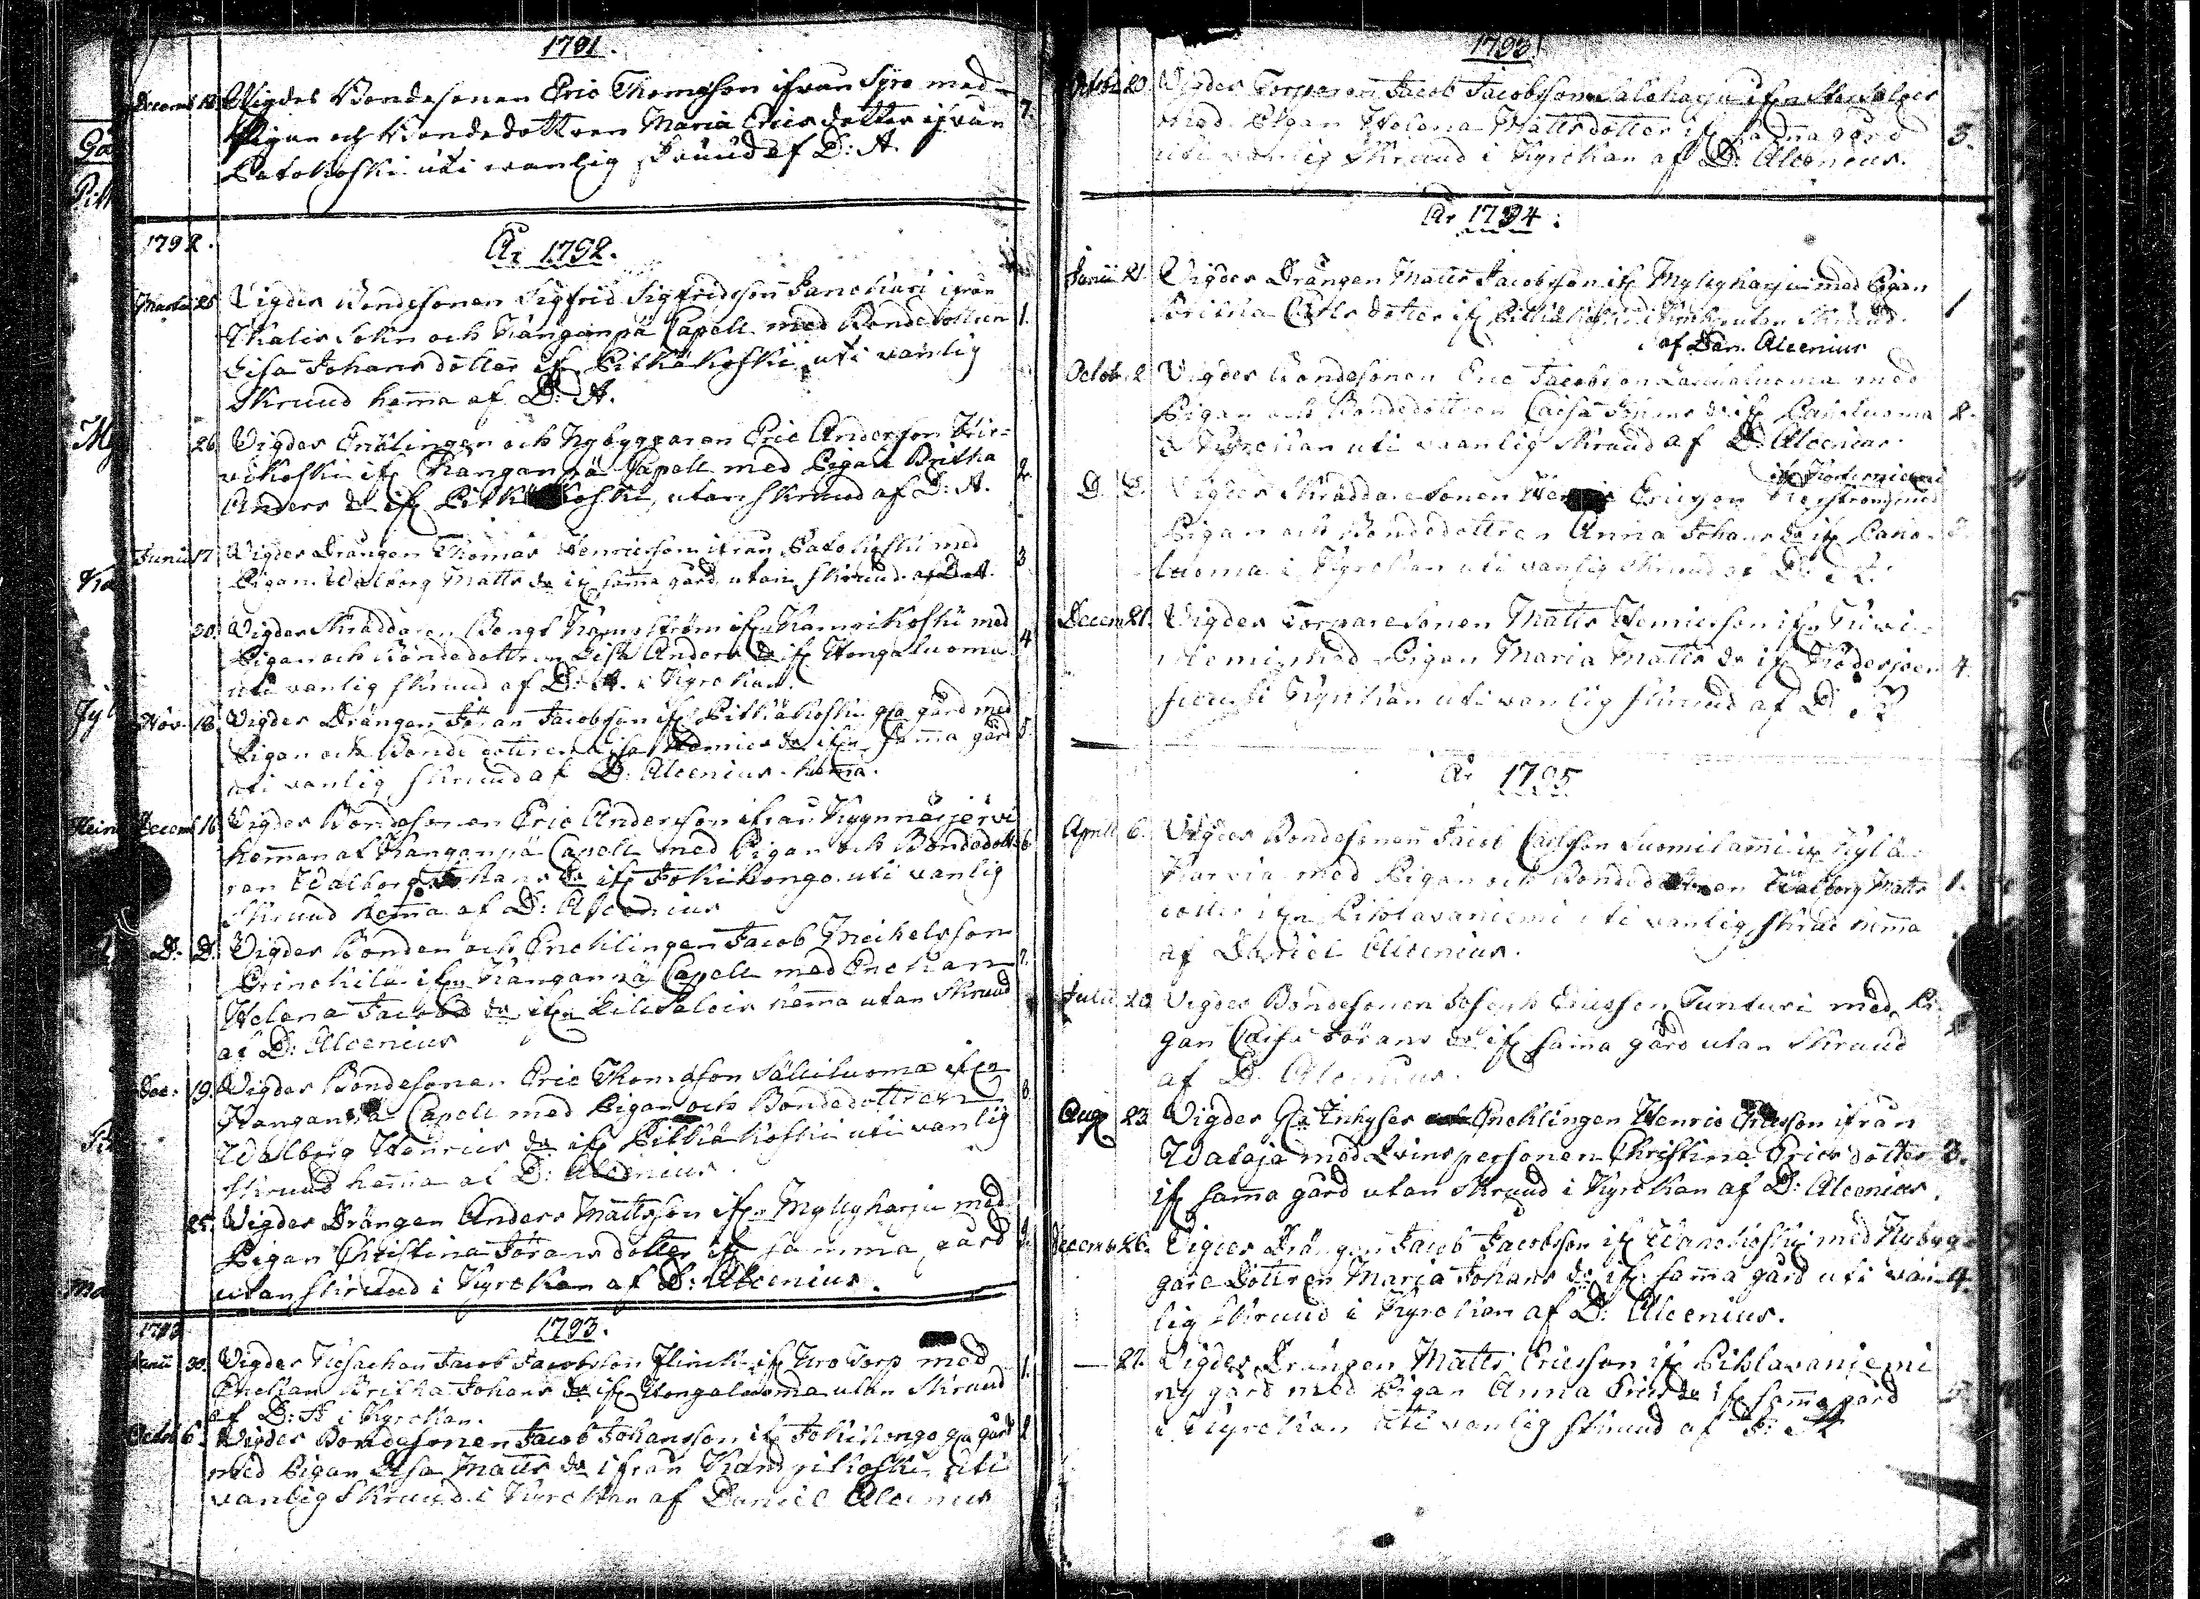 1791.
Decemb 18. Vigdes Bondesonen Eric Thomasson ifrån Syro med 7.
Pigan och Bondedottren Maria Ericsdotter ifrån
Patokoski uti wanlig skrud af D: A.
1792. År 1792.
Martii 25 Vigdes Bondesonen Sigfrid Sigfridsson Janckari ifrån
Ikalis Sokn och Kanganpä Capell med Bondedottren 1.
Lisa Johansdotter ifn Pitkäkoski uti vanlig
Skrud hema af D: A.
26. Vigdes Encklingen och Nybyggaren Eric Anderson Kir=
vikoski ifn Kanganpä Capell med Pigan Britha 2.
Anders dr ifn Pitkäkoski, utan skrud af D: A.
Junii 17 Vigdes Drängen Thomas Henricsson ifrån Patokoski med 3
Pigan Walborg Matts dr ifn sama gård utan skrud af D: A.
30. Vigdes Skräddaren Bengt ifn Kamrikoski med
Pigan och Bondedottren Lisa Anders dr ifn Hongaluoma 4
uti vanlig skrud af D: A. i Kyrckan.
Nov. 18. Vigdes Drängen Jöran Jacobsson ifn Pitkäkoski gla gård med
Pigan och Bondedottren Lisa Henrics dr ifn sama gård 5.
uti vanlig skrud af D: Alcenius hema.
Decemb 16 Vigdes Bondesonen Eric Andersson ifrån Kyynärjervi
heman af Kanganpä Capell med Pigan och Bondedott= 6
ren Walborg Johans dr ifn Jokikongo uti vanlig
Skrud hema af D: Alcenius
D: D. Vigdes Bonden och Encklingen Jacob Michelsson
ifn Kanganpä Capell med Enckan 7.
Helena Jacobs dr ifn Lilisalois hema utan Skrud
af D: Alcenius
Dec: 19. Vigdes Bondesonen Eric Thomasson Säkiluoma ifrn
Kanganpä Capell med Pigan och Bondedottren 8.
Walborg Henrics dr ifn Pitkäkoski uti vanlig
Skrud hema af D: Alcenius.
25. Vigdes Drängen Anders Mattsson ifn Myllyharju med
Pigan Christina Jörans dotter ifn samma gård 9.
utan skrud i Kyrckan af D: Alcenius.
1793 1793.
Junii 30. Vigdes Jacob Jacobsson Flinck ifn Kro Torp med 1.
Enckan Britha Johans dr ifn Hongaluoma utan Skrud
af D: A i Kyrckan.
Octob 6. Vigdes Bondesonen Jacob Johansson ifn Jokikongo gla gård 2
med Pigan Lisa Matts dr ifrån Kamrikoski uti
vanlig Skrud i Kyrckan af Daniel Alcenius
1793
Octob: 20 Vigdes Torparen Jacob Jacobsson Salokarju ifn
med Pigan Helena Mattsdotter ifn sama gård 3.
uti vanlig Skrud i Kyrckan af D: Alcenius.
År 1794:
Junii 21. Vigdes Drängen Matts Jacobsson ifn Myllyharju med Pigan
Britha Carls dotter ifn Pitkäkoski i Kyrckan utan Skrud 1
af Dan. Alcenius
Octob. 2. Vigdes Bondesonen Eric Jacobsson med
Pigan och Bondedottren Caisa Johans dr ifn Panoluoma 2.
i Kyrckan uti vanlig skrud af D: Alcenius.
D. D. Vigdes Skräddaresonen Henric Ericsson
Pigan och Bondedottren Anna Johans dr ifn Pano=
luoma i Kyrckan uti vanlig skrud af D: A.
Decem 21. Vigdes Torparesonen Matts Henricsson ifn
niemi med Pigan Maria Matts dr ifn 4.
i Kyrckan uti vanlig skrud af D: A
År 1795
April 6. Vigdes Bondesonen Jacob Carlsson Luomilami ifn Kylä=
Karvia med Pigan och Bondedottren Walborg Matts 1.
dotter ifn Pihlavaniemi uti vanlig skrud hema
af Daniel Alcenius.
Julii 20. Vigdes Bondesonen Joseph Ericsson Tunturi med Pi=
gan Caisa Jörans dr ifn sama gård utan skrud
af D: Alcenius.
Aug 23. Vigdes Inhyses Encklingen Henric Ericsson ifrån
Wataja med Qvinspersonen Christina Erics dotter 3.
ifn sama gård utan skrud i Kyrckan af D: Alcenius.
Decemb. 26. Vigdes Drängen Jacob Jacobsson ifn med Nybyg=
gare Dottren Maria Johans dr ifn sama gård uti van= 4.
lig skrud i Kyrckan af D: Alcenius.
— 27. Vigdes Drängen Matts Ericsson ifn Pihlavaniemi
ny gård med Pigan Anna Erics dr ifn sama gård 5.
i Kyrckan uti vanlig skrud af D: A